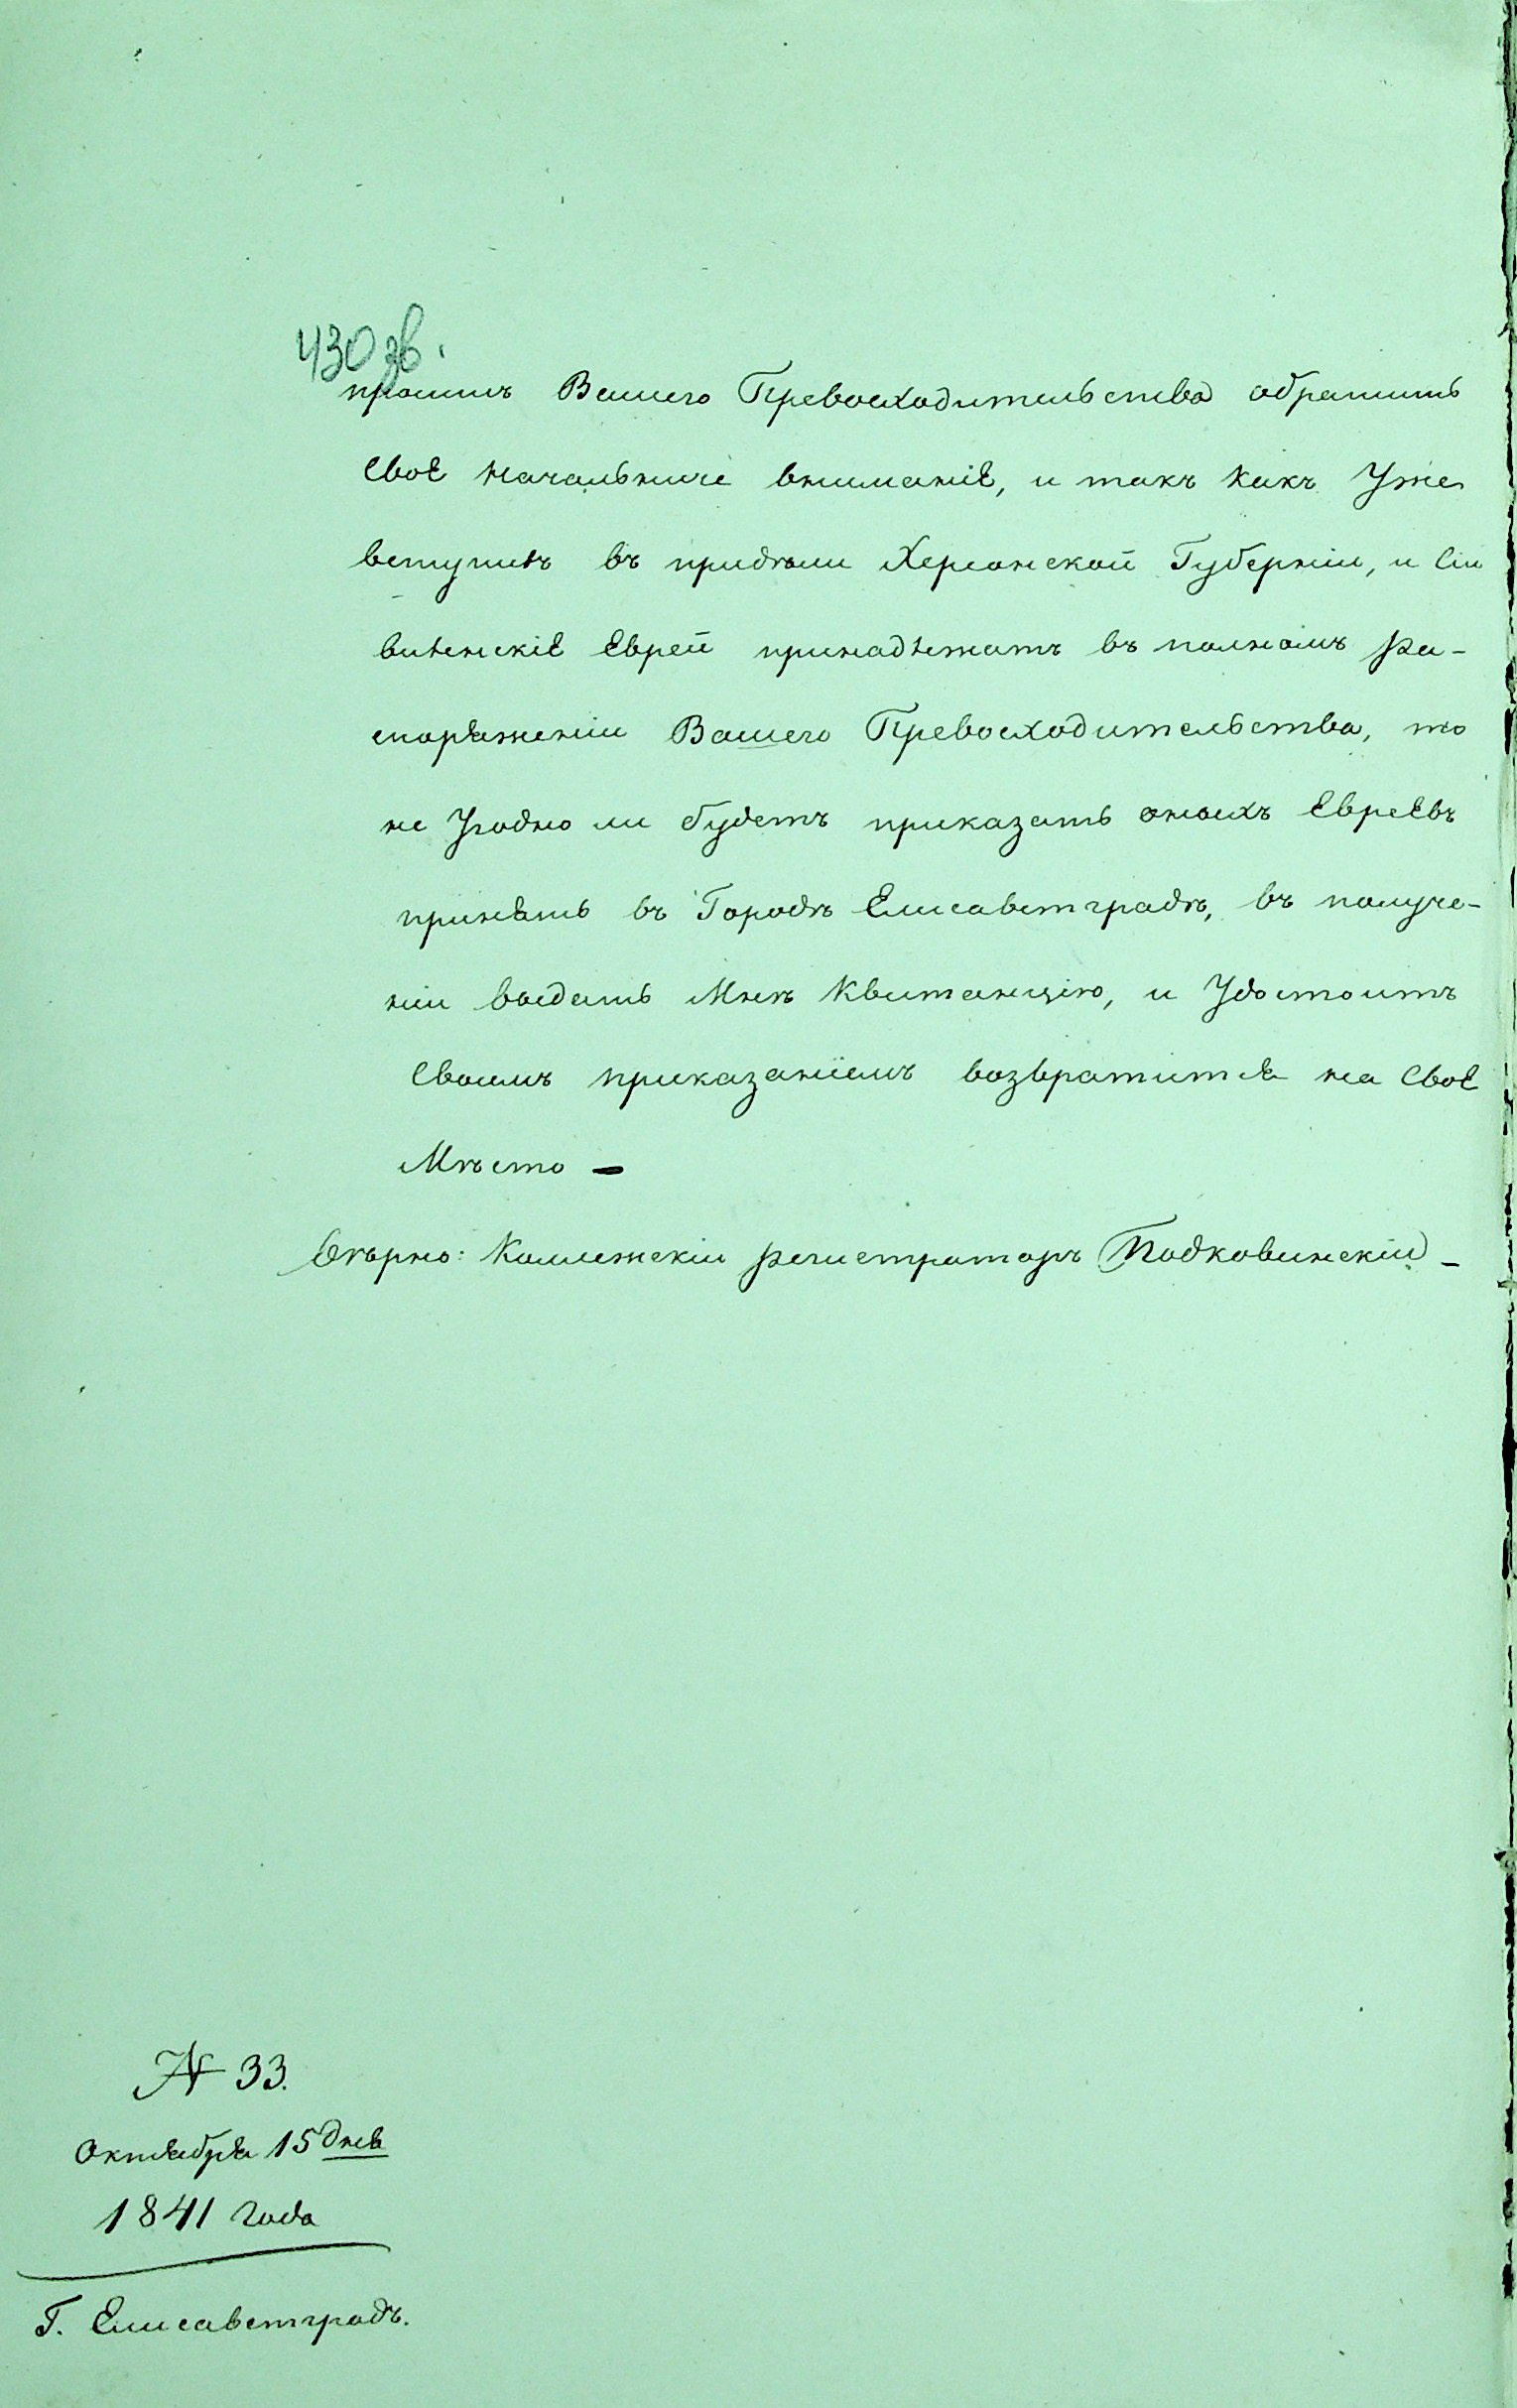 430 зв.
просить Вашего Превосходительства обратить
своЕ начальниче вниманіЕ, и такъ какъ Уже
вступилъ въ придѣли Херсонской Губерніи, и сіи
виленскіЕ Еврей принадлежатъ въ полномъ ра-
споряженіи Вашего Превосходительства, то
не Угодно ли будетъ приказать оныхъ ЕврЕЕвъ
принять въ Городѣ Елисаветградѣ, въ получе-
ніи выдать Мнѣ Квитанцію, и Удостоитъ
Своимъ приказаніемъ возвратится на СвоЕ
Мѣсто –
Вѣрно: Коллежскіи регистраторъ Подковинскіи –
№ 33.
Октября 15 дня
1841 Года
Г. Елисаветградъ.